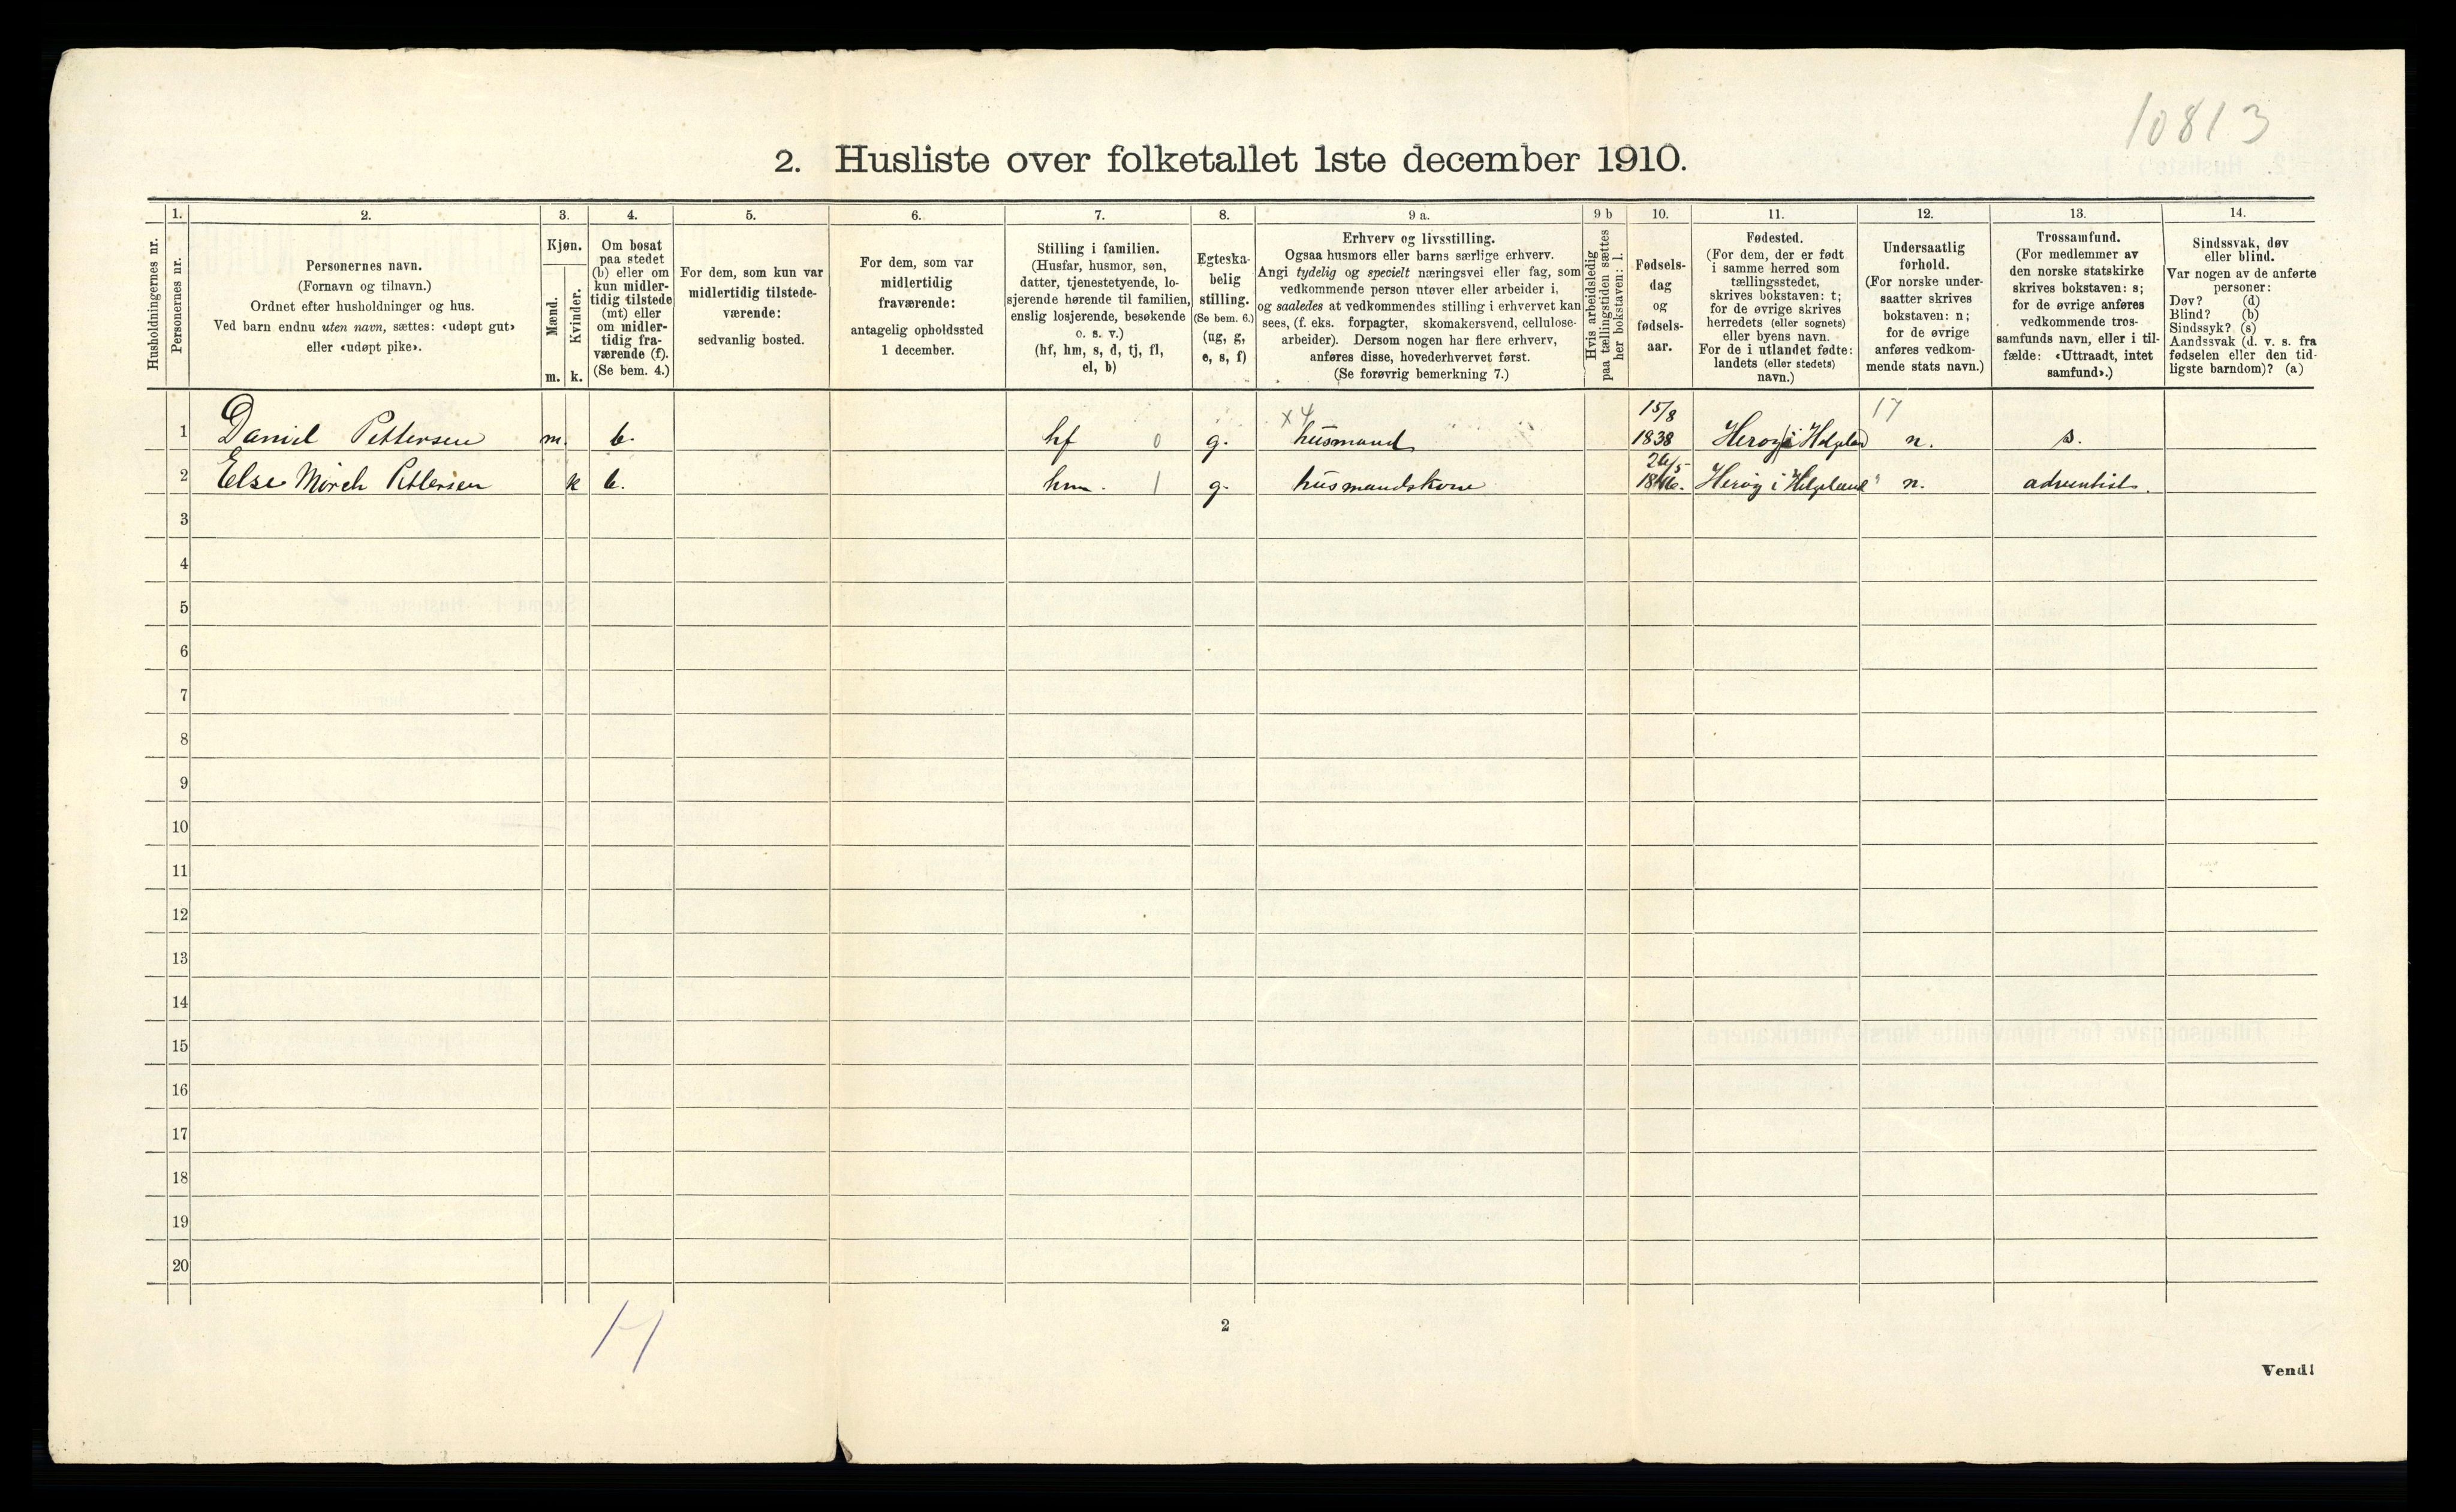 10813
2. Husliste over folketallet 1ste december 1910.
Husholdningernes nr.
1.
Personernes nr.
2.
Personernes navn.
(Fornavn og tilnavn.)
Ordnet efter husholdninger og hus.
Ved barn endnu uten navn, sættes: «udøpt gut»
eller «udøpt pike».
3.
Kjøn.
Mænd.
Kvinder.
m. k.
4.
Om bosat
paa stedet
(b) eller om
kun midler-
tidig tilstede
(mt) eller
om midler-
tidig fra-
værende (f).
(Se bem. 4.)
5.
For dem, som kun var
midlertidig tilstede-
værende:
sedvanlig bosted.
6.
For dem, som var
midlertidig
fraværende:
antagelig opholdssted
1 december.
7.
Stilling i familien.
(Husfar, husmor, søn,
datter, tjenestetyende, lo-
sjerende hørende til familien,
enslig losjerende, besøkende
o. s. v.)
(hf, hm, s, d, tj, fl,
el, b)
8.
Egteska-
belig
stilling.
(Se bem. 6.)
(ug, g,
e, s, f)
9 a.
Erhverv og livsstilling.
Ogsaa husmors eller barns særlige erhverv.
Angi tydelig og specielt næringsvei eller fag, som
vedkommende person utøver eller arbeider i,
og saaledes at vedkommendes stilling i erhvervet kan
sees, (f. eks. forpagter, skomakersvend, cellulose-
arbeider). Dersom nogen har flere erhverv,
anføres disse, hovederhvervet først.
(Se forøvrig bemerkning 7.)
9 b
Hvis arbeidsledig
paa tællingstiden sættes
her bokstaven: l.
10.
Fødsels-
dag
og
fødsels-
aar.
11.
Fødested.
(For dem, der er født
i samme herred som
tællingsstedet,
skrives bokstaven: t;
for de øvrige skrives
herredets (eller sognets)
eller byens navn.
For de i utlandet fødte:
landets (eller stedets)
navn.)
12.
Undersaatlig
forhold.
(For norske under-
saatter skrives
bokstaven: n;
for de øvrige
anføres vedkom-
mende stats navn.)
13.
Trossamfund.
(For medlemmer av
den norske statskirke
skrives bokstaven: s;
for de øvrige anføres
vedkommende tros-
samfunds navn, eller i til-
fælde: «Uttraadt, intet
samfund».)
14.
Sindssvak, døv
eller blind.
Var nogen av de anførte
personer:
Døv? (d)
Blind? (b)
Sindssyk? (s)
Aandssvak (d. v. s. fra
fødselen eller den tid-
ligste barndom)? (a)
x4 15/8 17
1 Daniel Pettersen m. b. hf 0 g. husmand 1838 Herøy i Helgeland n. s.
26/5
2 Else Mørch Pettersen k b. hm. 1 g. husmandskone 1846. Herøy i Helgeland n. adventist.
3
4
5
6
7
8
9
10
11
12
13
14
15
16
17
18
19
20
2
Vend!